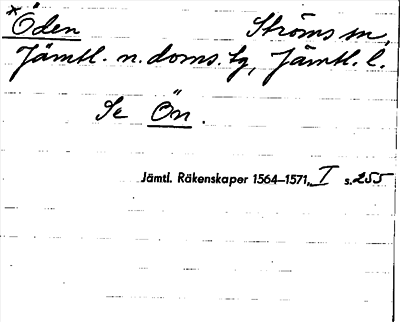 *Öden Ströms sn,
Jämtl. n. doms. tg, Jämtl. l.
Se Ön.
Jämtl. Räkenskaper 1564–1571, I s. 255